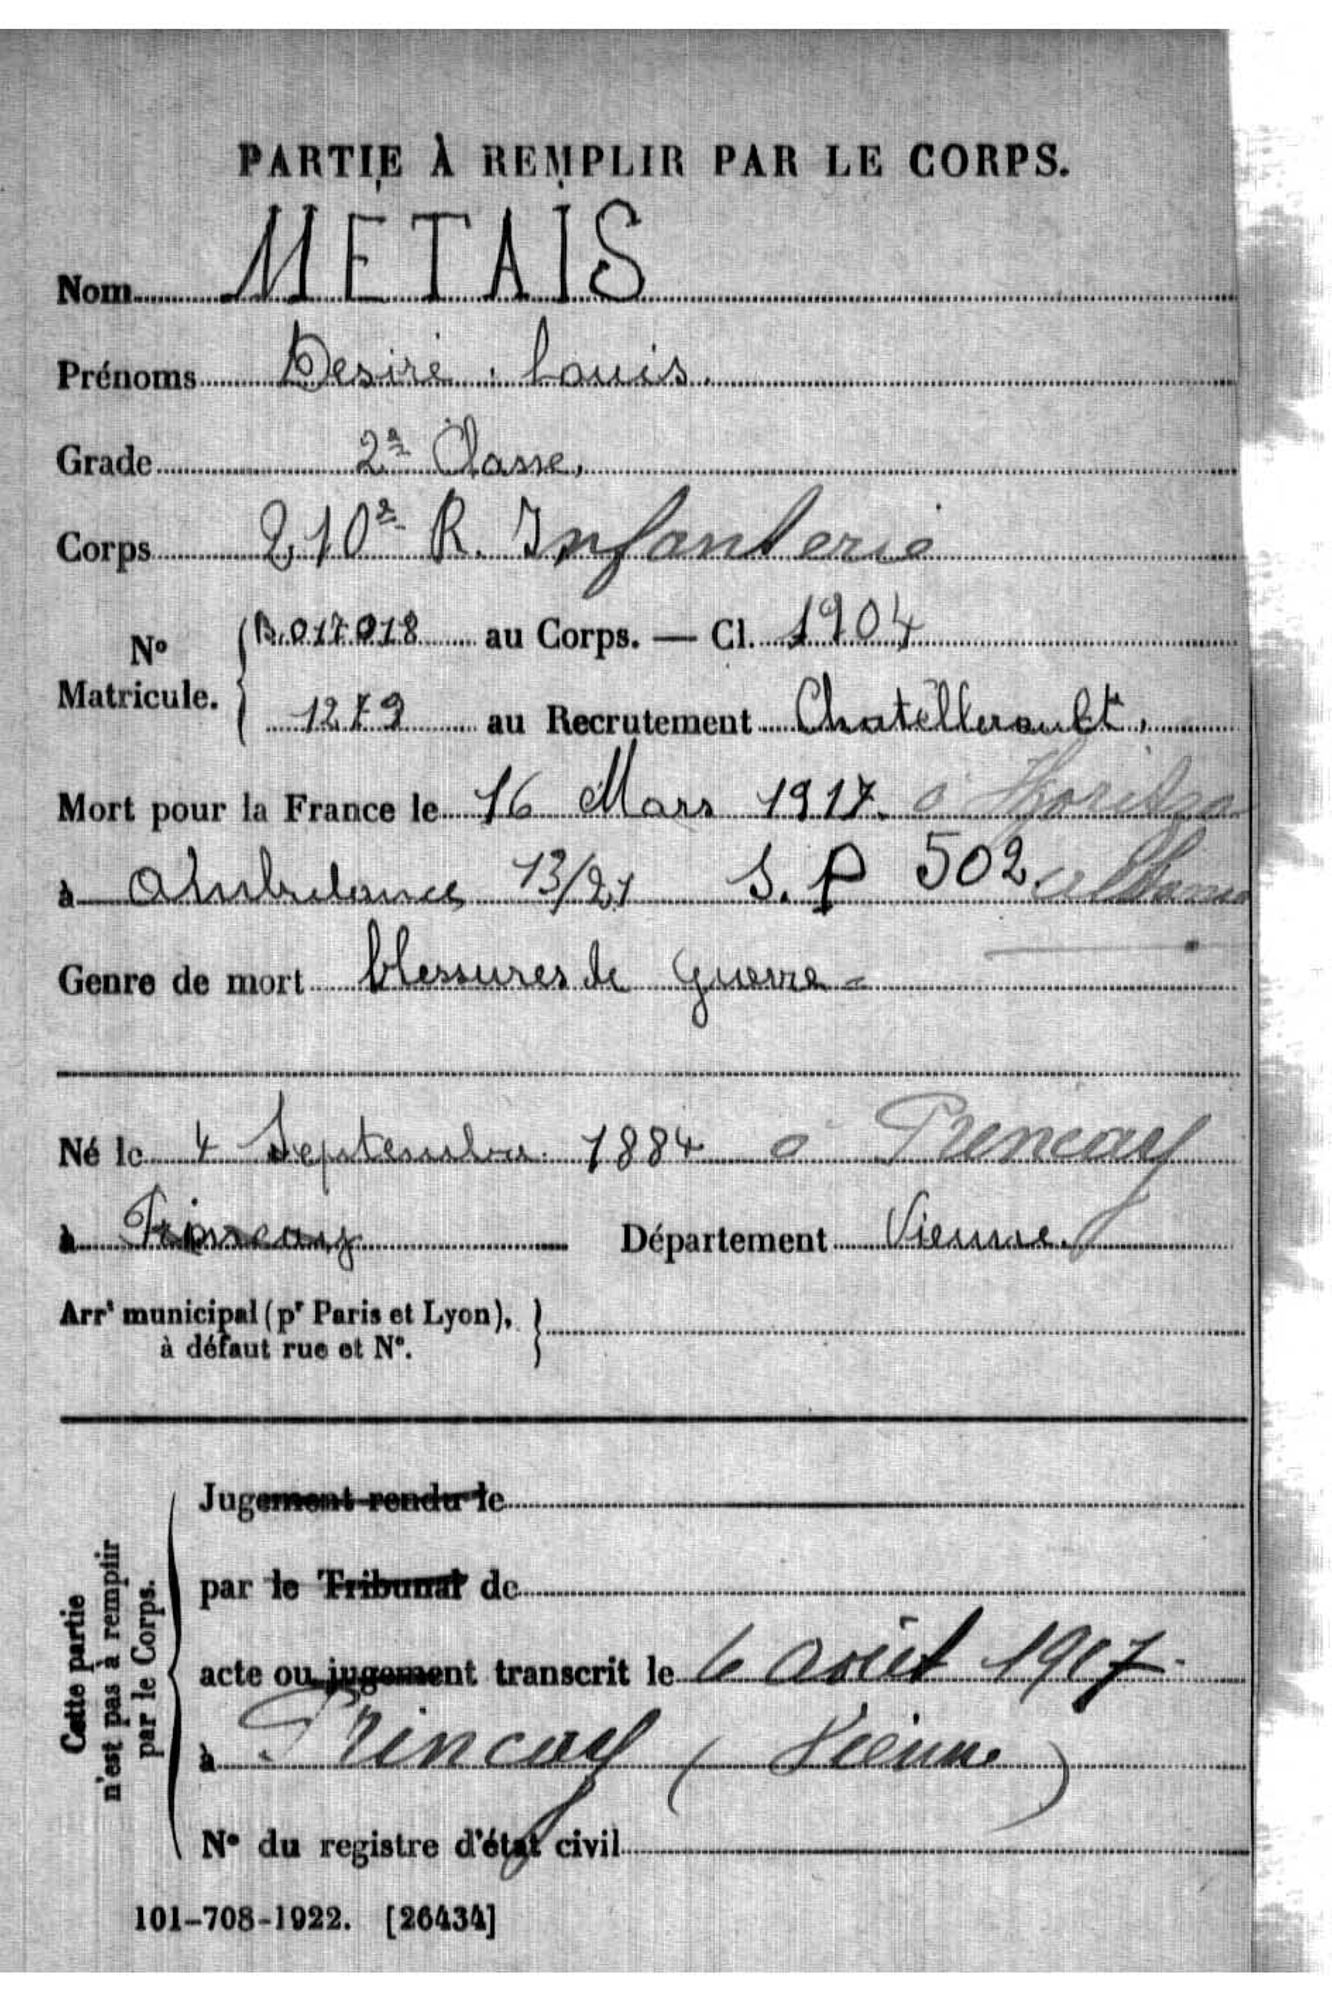 PARTIE À REMPLIR PAR LE CORPS.
Nom METAIS
Prénoms Desiré. Louis.
Grade 2e Classe.
Corps 210e R. Infanterie
No Matricule. { B.017018 au Corps. — Cl. 1904
1279 au Recrutement Chatellerault.
Mort pour la France le 16 Mars 1917. à
à Ambulance 13/21 S. P 502. Albanie
Genre de mort blessures de guerre
Né le 4 Septembre 1884 à Princay
à Princay Département Vienne.
Arrt municipal (pr Paris et Lyon), }
à défaut rue et No.
Cette partie n'est pas à remplir par le Corps.
Jugement rendu le
par le Tribunal de
acte ou jugement transcrit le 6 août 1917.
à Princay (Vienne)
No du registre d'état civil
101-708-1922. [26434]